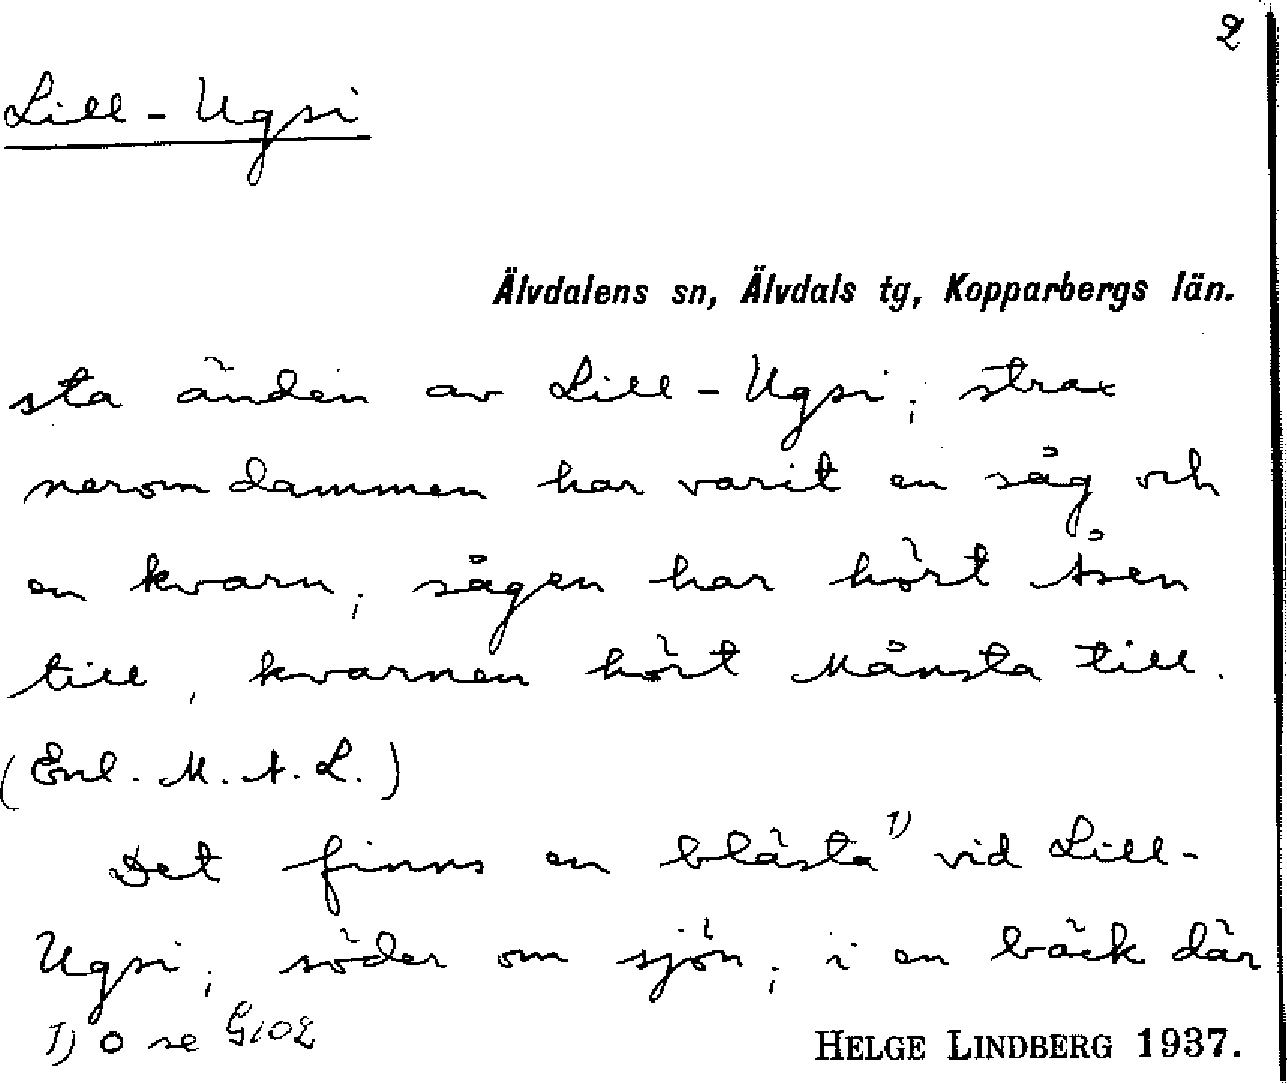 2
Lill-Ugsi
Älvdalens sn, Älvdals tg, Kopparbergs län.
sta änden av Lill-Ugsi; strax
nerom dammen har varit en såg och
en kvarn; sågen har hört Åsen
till, kvarnen hört Månsta till.
(Enl. M. A. L.)
Det finns en blästa 1) vid Lill-
Ugsi; söder om sjön; i en bäck där
1) O se G102
HELGE LINDBERG 1937.